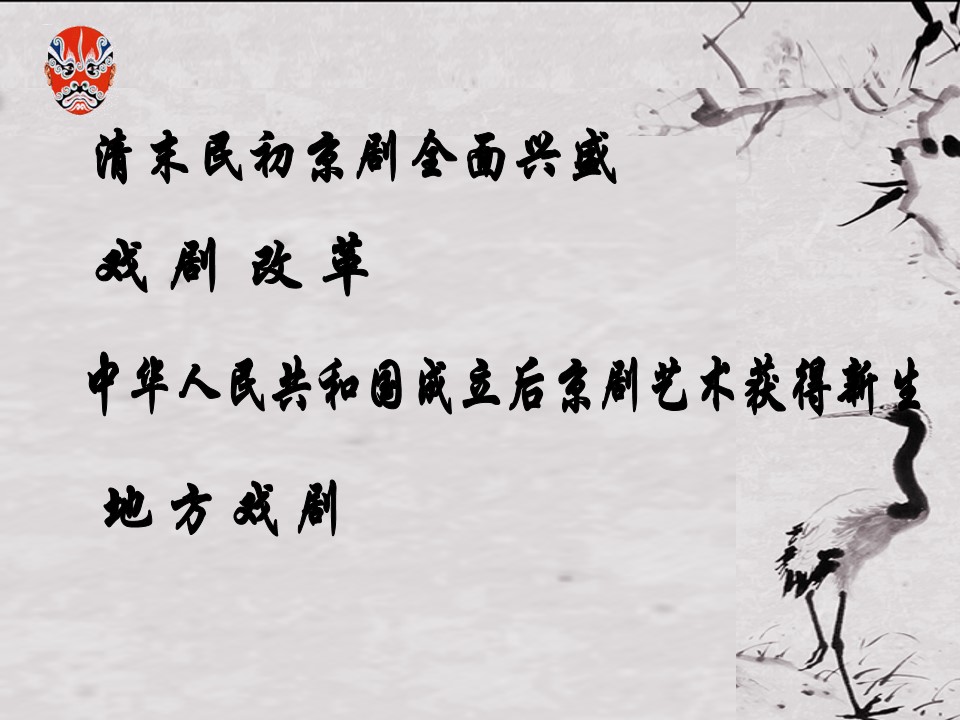 清末民初京剧全面兴盛
戏剧改革
中华人民共和国成立后京剧艺术获得新生
地方戏剧